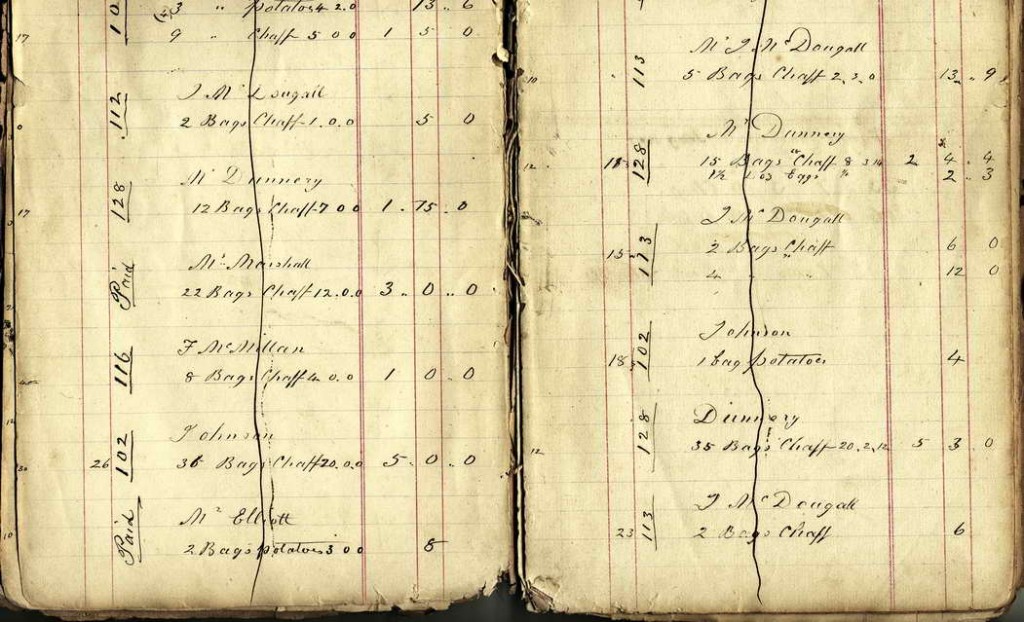 3 " potatoes 4 2.0 13 .. 6
17 9 " Chaff 5 0 0 1 5 0
112 J Mc Dougall
2 Bags Chaff 1.0.0 5 0
128 Mr Dunnery
17 12 Bags Chaff 7 0 0 1 . 15 . 0
Paid Mr Marshall
22 Bags Chaff 12.0.0 3 .. 0 .. 0
116 F McMillan
8 Bags Chaff 4 0.0 1 0 .. 0
102 Johnson
26 36 Bags Chaff 20.0.0 5 .. 0 .. 0
Paid Mr Elliott
10 2 Bags potatoes 3 0 0 8
113 Mr J Mc Dougall
10 5 Bags Chaff 2.3.0 13 .. 9
128 Mr Dunnery
12 15 Bags Chaff 8 3 14 2 4 .. 4
1½ Eggs " 2 .. 3
113 J Mc Dougall
15 2 Bags Chaff 6 0
4 " " 12 0
102 Johnson
18 1 bag potatoes 4
128 Dunnery
12 35 Bags Chaff 20.2.12 5 3 0
113 J Mc Dougall
23 2 Bags Chaff 6